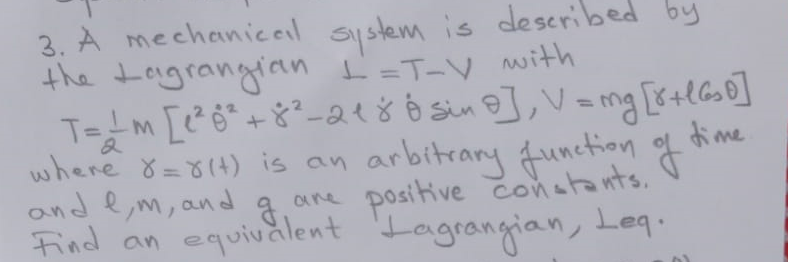 3. A mechanical system is described by
the Lagrangian L = T-V with
T = 1/2 m [l² θ̇² + γ̇² - 2l γ̇ θ̇ sin θ], V = mg [γ + l Cos θ]
where γ = γ(t) is an arbitrary function of time
and l, m, and g are positive constants.
Find an equivalent Lagrangian, Leq.